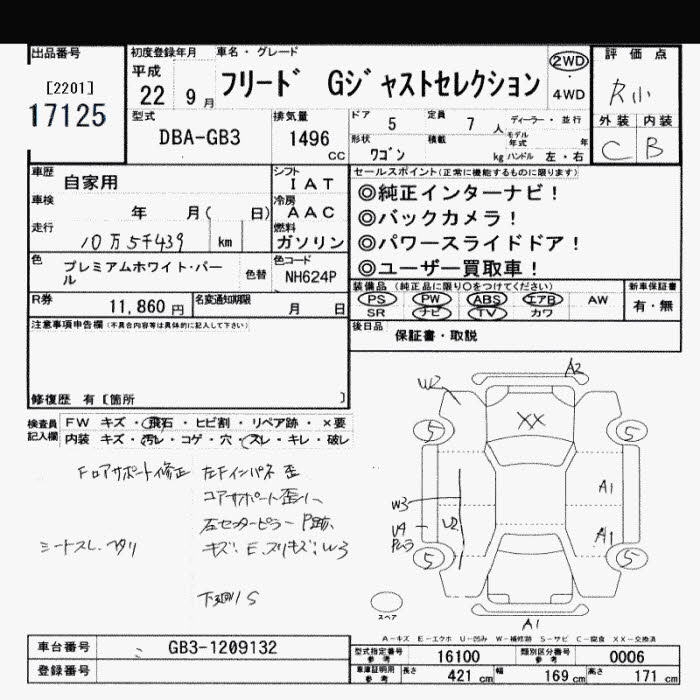 出品番号
[2201]
17125
初度登録年月
平成
22年 9月
車名・グレード
フリード Gジャストセレクション
2WD
・
4WD
評価点
外装 内装
C B
型式
DBA-GB3
排気量
1496
CC
ドア
5
定員
7
人
形状
ワゴン
積載
kg
ディーラー・並行
モデル
年式
年
ハンドル 左・右
車歴
自家用
車検
年 月( 日)
走行
10万5千439
km
シフト
IAT
冷房
AAC
燃料
ガソリン
色
プレミアムホワイト・パー
ル
色替
色コード
NH624P
R券
11,860円
名変通知期限
月 日
セールスポイント(正常に機能するものに限ります)
◎純正インターナビ!
◎バックカメラ!
◎パワースライドドア!
◎ユーザー買取車!
装備品 (純正品に限り○をつけてください)
PS PW ABS エアB AW
SR ナビ TV カワ
新車保証書
有・無
後日品
保証書・取説
注意事項申告欄(不具合内容等は具体的に記入して下さい)
修復歴 有〔箇所 〕
検査員
記入欄
FW キズ・飛石・ヒビ割・リペア跡・×要
内装 キズ・汚レ・コゲ・穴・スレ・キレ・破レ
Fロアサポート修正 左Fインパネ歪
コアサポート歪小、
右センターピラーP跡、
キズ:E、スリキズ:W3
シートスレ、ヘタリ
下廻りS
A2
W2
XX
5
5
W3
U2
A1
A1
5
5
A1
スペア
A-キズ E-エクボ U-凹み W-補修跡 S-サビ C-腐食 XX-交換済
車台番号
GB3-1209132
登録番号
型式指定番号
参考
16100
類別区分番号
参考
0006
車庫証明用
参考
長さ
421 cm
幅
169 cm
高さ
171 cm